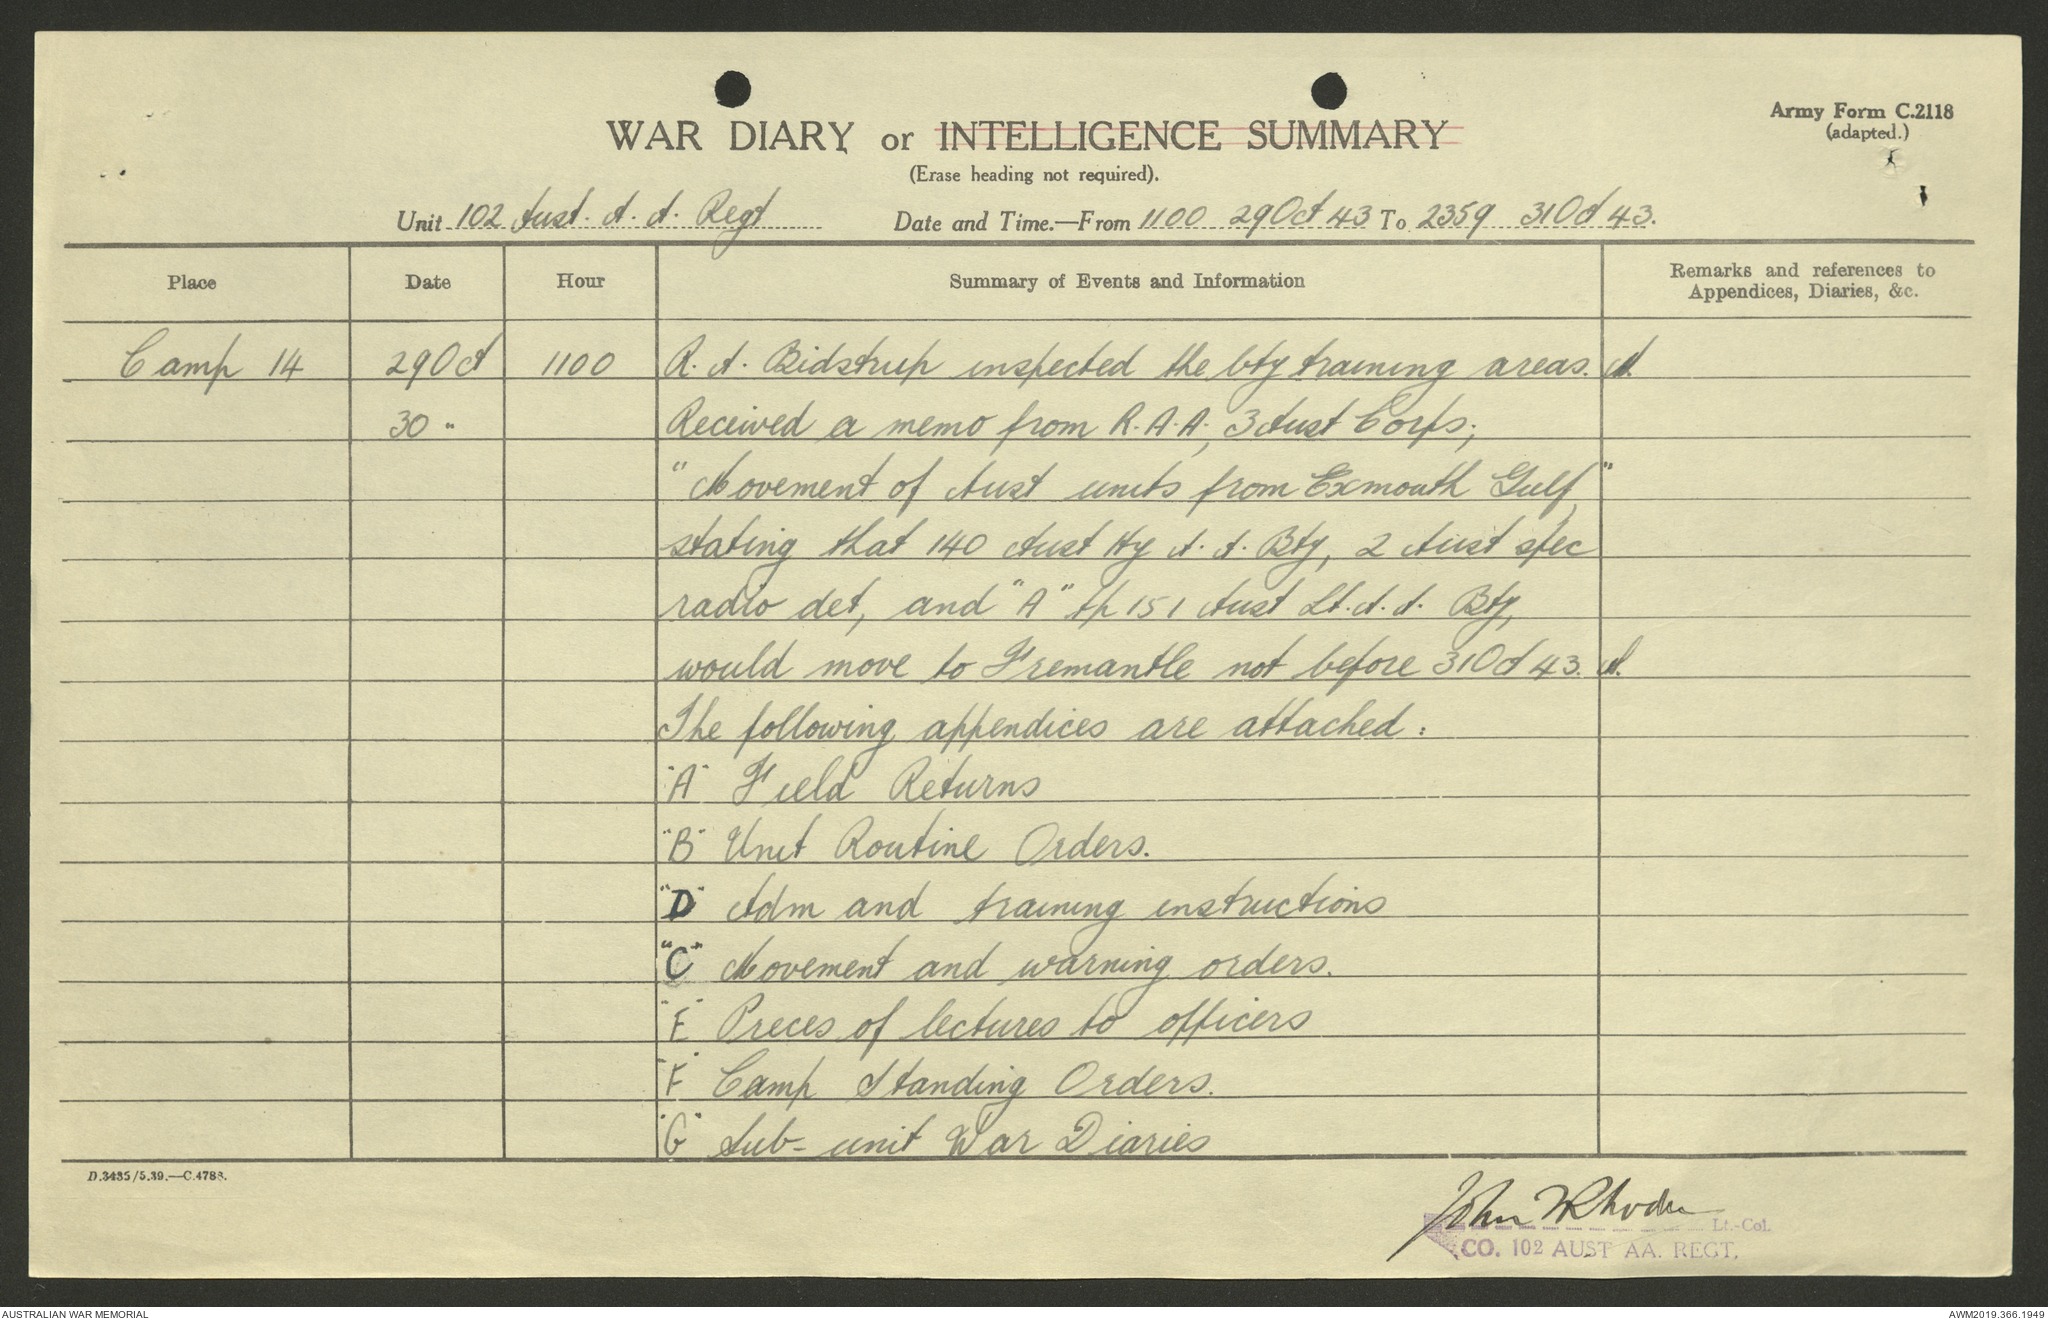 Army Form C.2118
(adapted.)
WAR DIARY or INTELLIGENCE SUMMARY
(Erase heading not required).
Unit 102 Aust. A. A. Regt Date and Time.—From 1100 29 Oct 43 To 2359 31 Oct 43.
Place Date Hour Summary of Events and Information Remarks and references to
Appendices, Diaries, &c.
Camp 14 29 Oct 1100 R. A. Bidstrup inspected the bty training areas.
30 " Received a memo from R.A.A., 3 Aust Corps;
"Movement of Aust units from Exmouth Gulf"
stating that 140 Aust Hy A. A. Bty, 2 Aust spec
radio det, and "A" tp 151 Aust Lt. A. A. Bty,
would move to Fremantle not before 31 Oct 43.
The following appendices are attached:
"A" Field Returns
"B" Unit Routine Orders.
"D" Adm and training instructions
"C" Movement and warning orders.
"E" Preces of lectures to officers
"F" Camp Standing Orders.
"G" Sub-unit War Diaries
D.3435/5.39.—C.4788.
John W Rhoden Lt.-Col.
CO. 102 AUST AA. REGT.
AUSTRALIAN WAR MEMORIAL AWM2019.366.1949